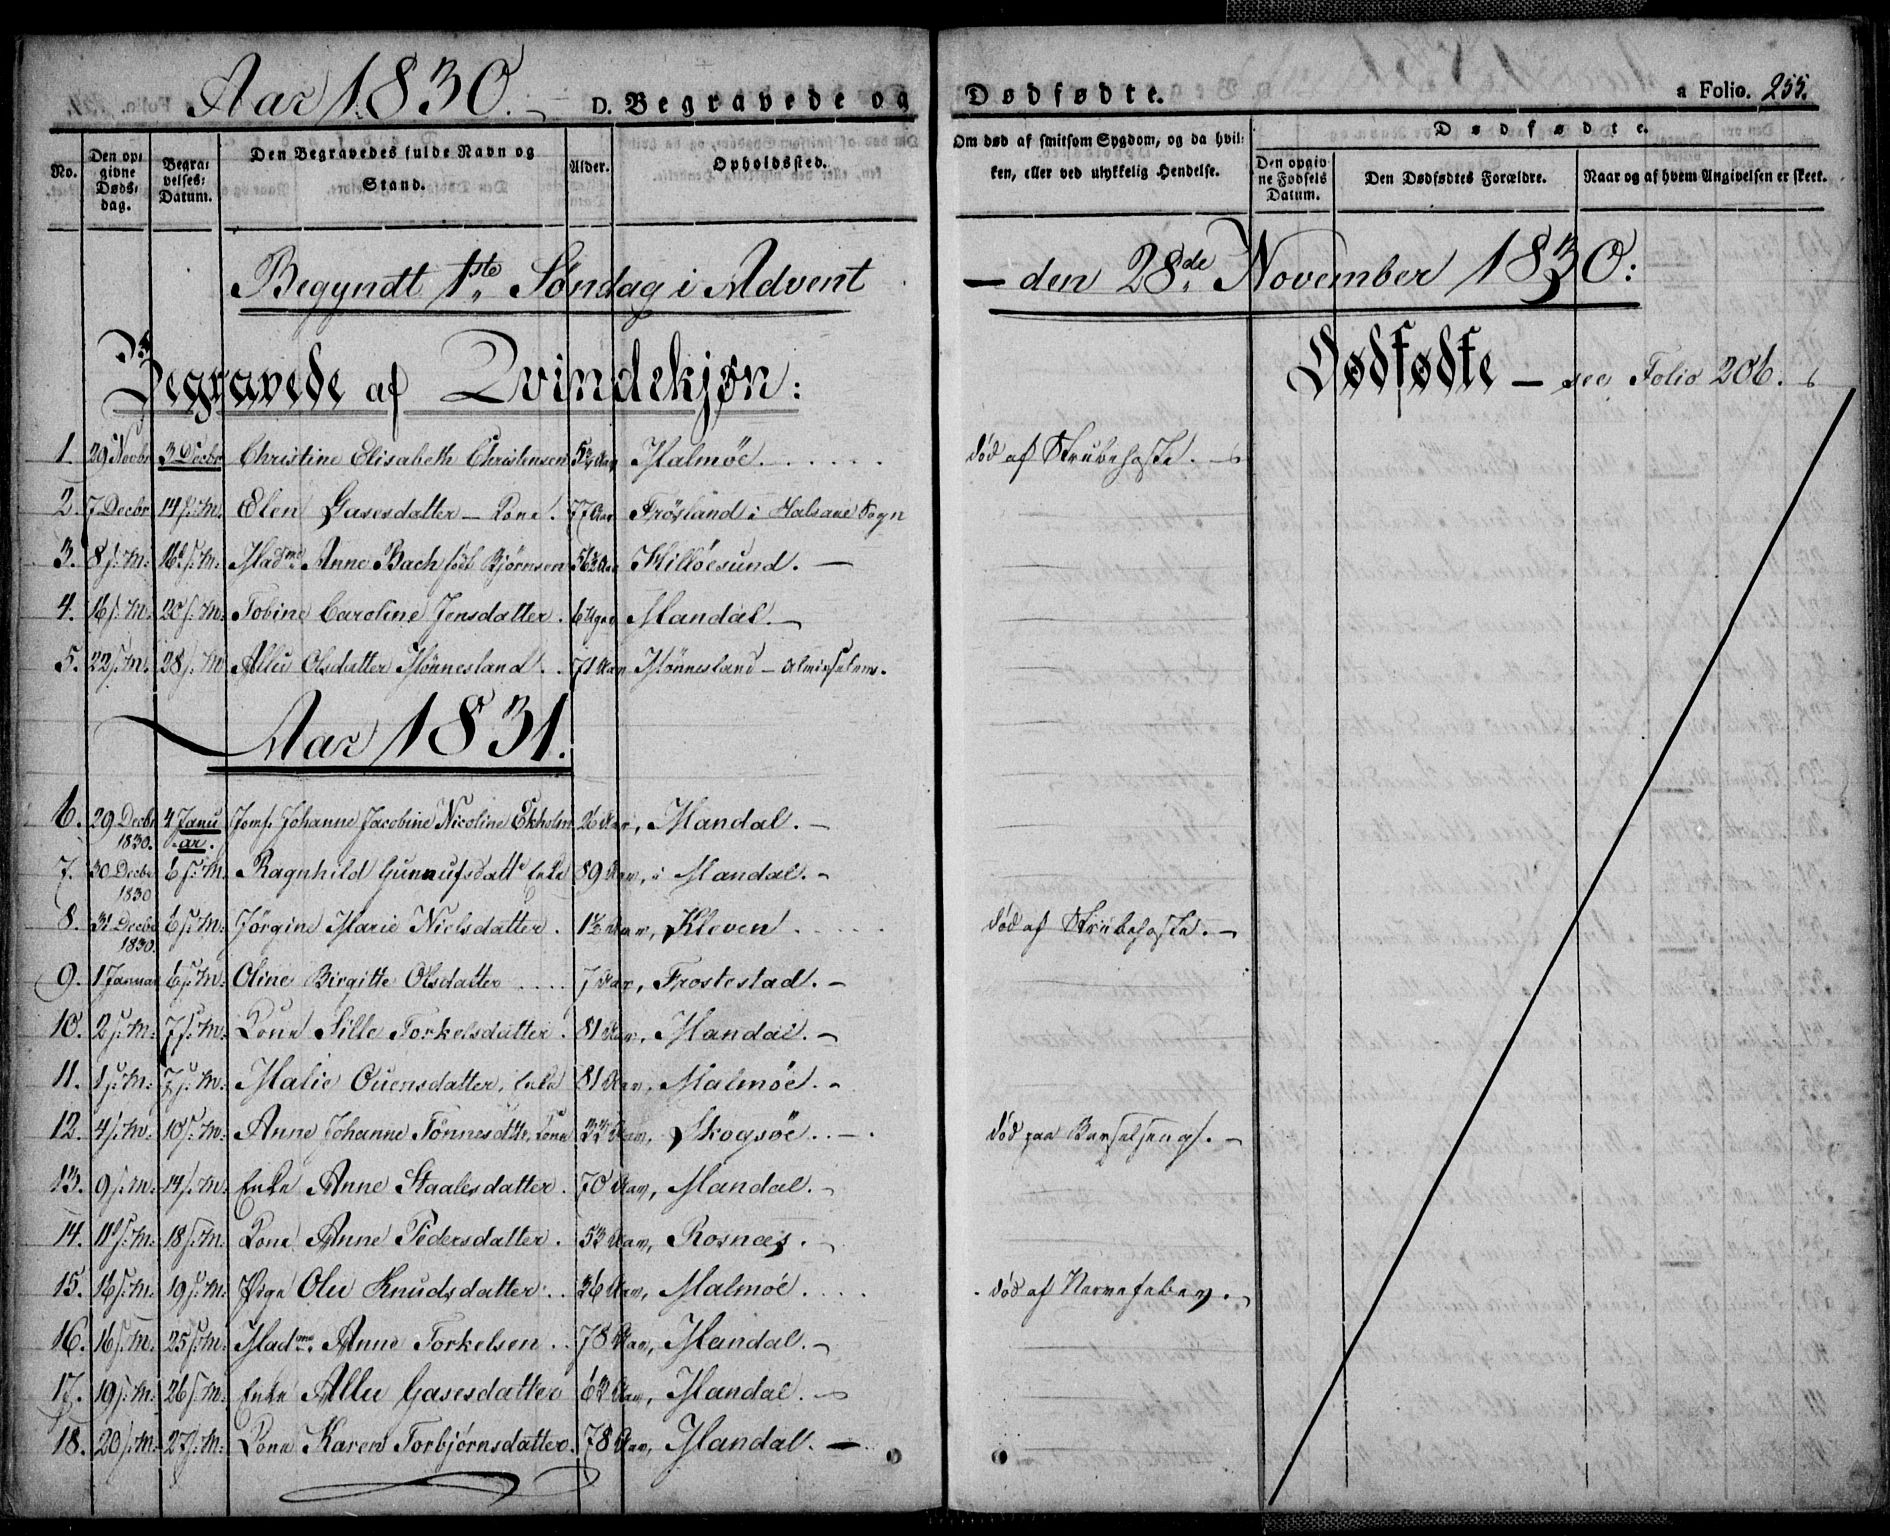 Aar 1830. D. Begravede og Dødfødte. a Folio. 255.
No. Den opgivne Dødsdag. Begravelses-Datum. Den Begravedes fulde Navn og Stand. Alder. Opholdssted. Om død af smitsom Sygdom, og da hvilken, eller ved ulykkelig Hendelse. Dødfødte.
Den opgivne Fødsels Datum. Den Dødfødtes Forældre. Naar og af hvem Angivelsen er skeet.
Begyndt 1ste Søndag i Advent — den 28de November 1830:
Begravede af Qvindekjøn: Dødfødte — see Folio 206.
1. 29 Novbr 3 Decbr Christine Elisabeth Christensen Malmöe. død af Strubehoste.
2. 7 Decbr 14 s: M. Elen Gasesdatter — Kone. 77 Aar Frösland i Halsaae Sogn
3. 8 s: M: 16 s: M. Madme Anne Bach født Bjørnsen Killöesund. —
4. 16 s: M: 20 s: M: Tobine Caroline Jensdatter. Mandal. —
5. 22 s: M. 28 s: M Allu Olsdatter Mönnesland. 71 Aar Mönnesland —
Aar 1831.
6. 29 Decbr 1830. 4 Januar. Jomf. Johanne Jacobine Nicoline Ekholm 26 Aar, Mandal. —
7. 30 Decbr 1830 6 s: M. Ragnhild Gunnufsdattr Enke 89 Aar, i Mandal. —
8. 31 Decbr 1830. 6 s: M: Jörgine Marie Nielsdatter. 1½ Aar, Kleven død af Strubehoste. —
9. 1 Januar 6 s: M: Oline Birgitte Olsdatter 7 Aar, Frostestad. —
10. 2 s: M: 7 s: M: Kone Sille Torkelsdatter. 81 Aar, Mandal. —
11. 1 s: M: 7 s: M. Malie Ouensdatter, Enke 81 Aar, Malmöe. —
12. 4 s: M: 10 s: M: Anne Johanne Tönnesdttr, Kone 33 Aar, Skogsöe. død paa Barselseng. —
13. 9 s: M: 14 s: M: Enke Anne Staalesdatter. 70 Aar, Mandal. —
14. 11 s: M: 18 s: M: Kone Anne Pedersdatter. 53 Aar, Rosnæs. —
15. 16 s: M: 19 s: M: Pige Olu Knudsdatter. 36 Aar, Malmöe. død af Nervefeber. —
16. 16 s: M. 25 s: M: Madme Anne Torkelsen. 78 Aar, Mandal. —
17. 19 s: M: 26 s: M: Enke Allu Gasesdatter 63 Aar, Mandal. —
18. 20 s: M: 27 s: M: Kone Karen Torbjørnsdatter. 78 Aar, Mandal. —